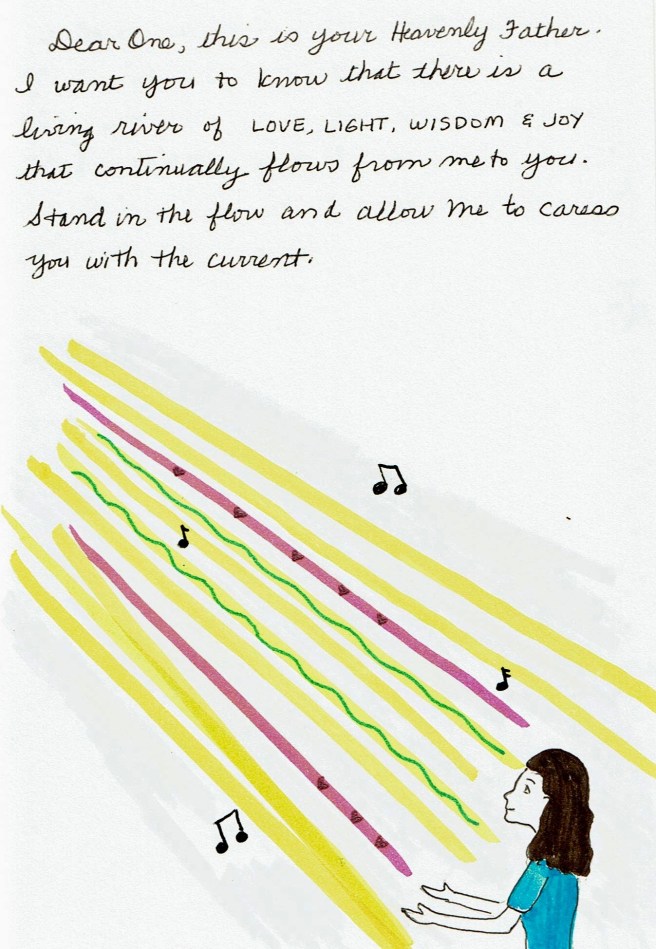 Dear One, this is your Heavenly Father.
I want you to know that there is a
living river of LOVE, LIGHT, WISDOM & JOY
that continually flows from me to you.
Stand in the flow and allow Me to caress
you with the current.